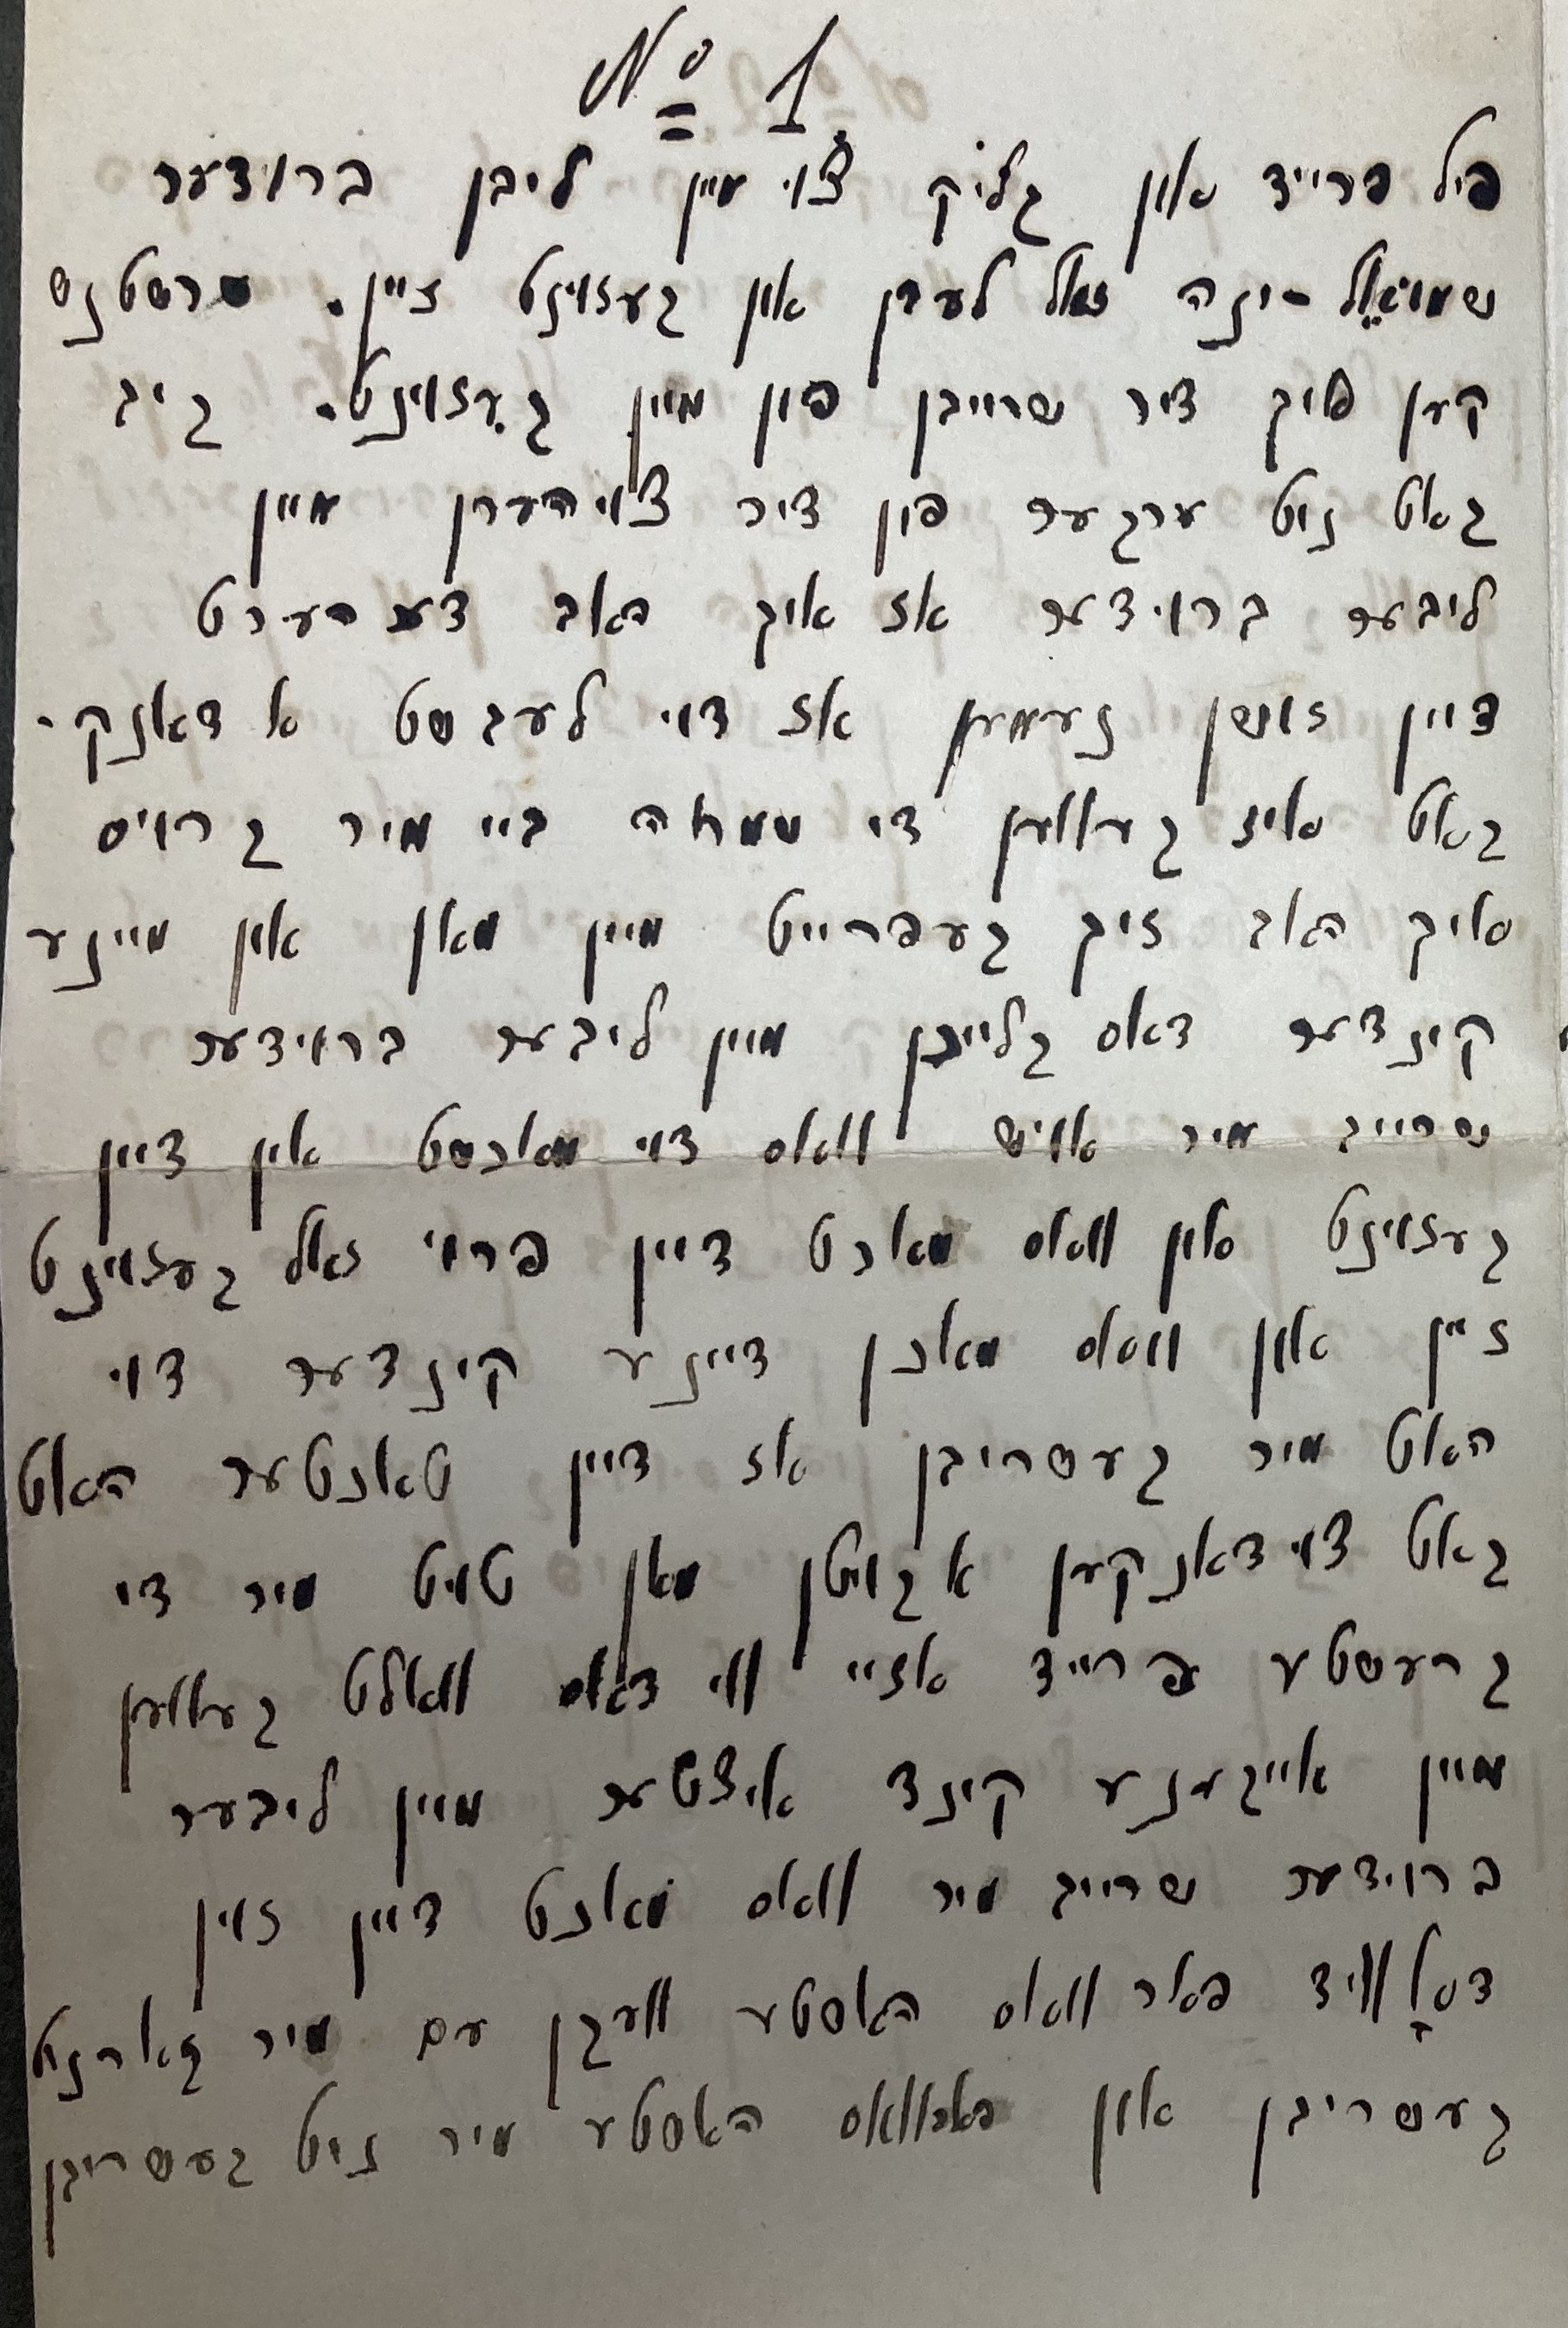 № 1
פיל פרייד און גליק צוי מיין ליבן ברודער
שמואל יונה זאל לעבן און געזוינט זיין. ערשטנש
קען איך דיר שרייבן פון מיין געזוינט. גיב
גאט ניט ערגער פון דיר צוי הערן מיין
ליבער ברוידער אז איך האב דערהערט
דיין זושן נעמען אז דוי לעבשט א דאנק
גאט איז געווען די שמחה ביי מיר גרויס
איך האב זיך געפרייט מיין מאן אין מיינע
קינדער דאס גלייכן מיין ליבער ברוידער
שרייב מיר אויש וואס דוי מאכשט אין דיין
געזוינט און וואס מאכט דיין פרוי זאל געזוינט
זיין און וואס מאכן דיינע קינדער דוי
האט מיר געשריבן אז דיין טאכטער האט
גאט צוי דאנקען א גויטן מאן טויט מיר די
גרעשטע פרייד אזיי ווי דאס וואלט געווען
מיין אייגענע קינד איצטער מיין ליבער
ברוידער שרייב מיר וואס מאכט דיין זוין
דאָוויד פאר וואס האסטע וועגן עם מיר גארניט
געשריבן און פארוואס האסטע מיר ניט געשריבן